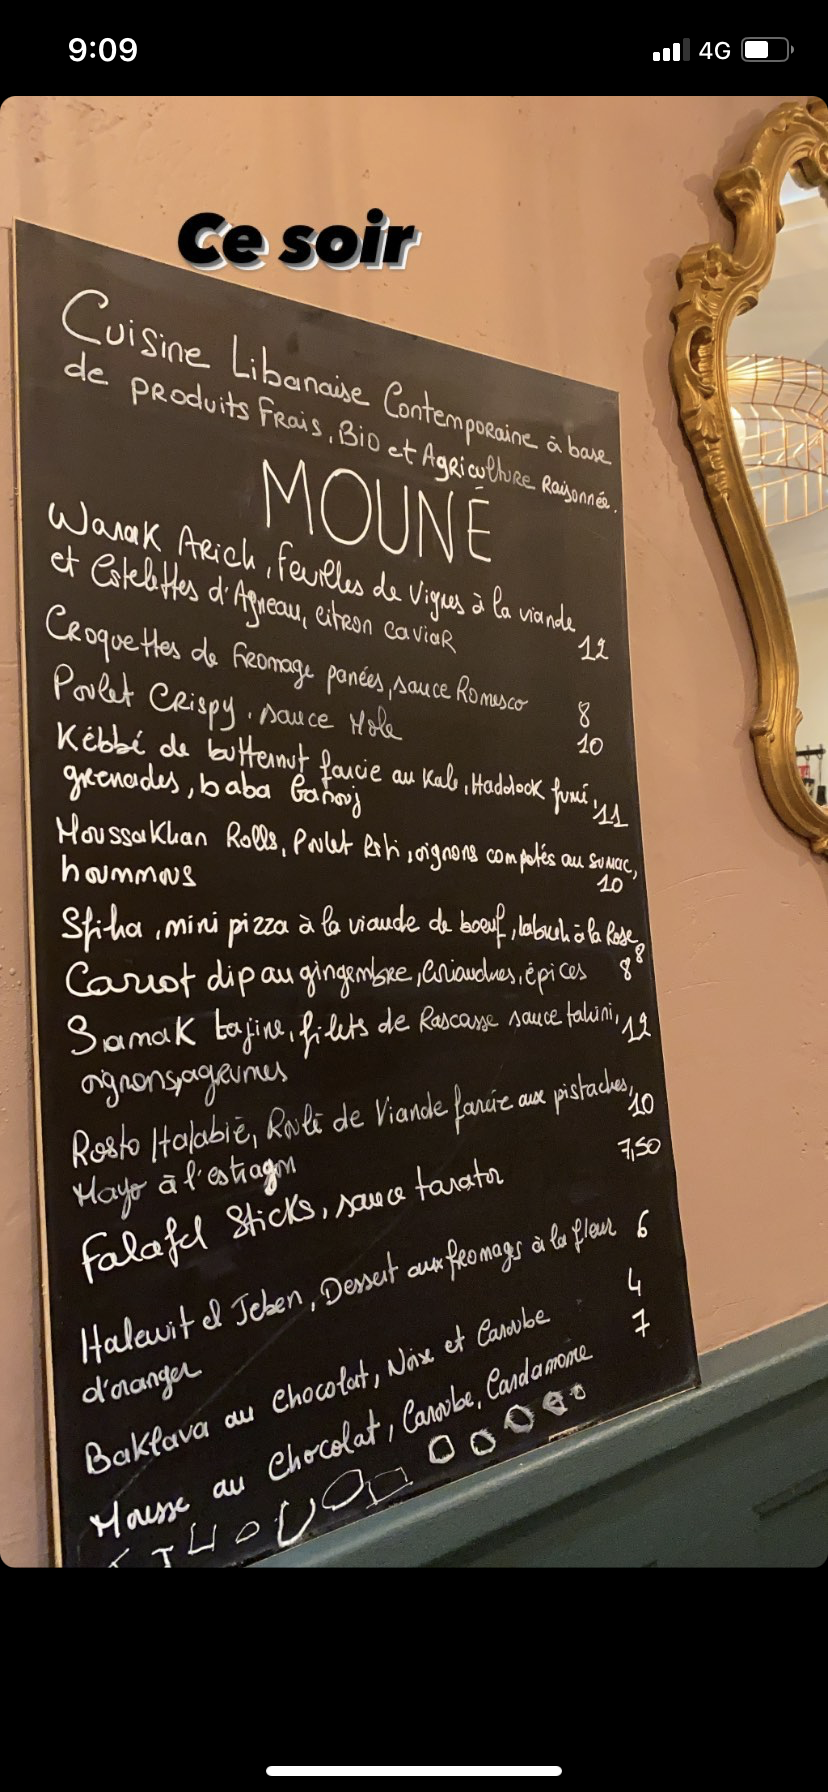 9:09
4G
Ce soir
Cuisine Libanaise Contemporaine à base
de produits Frais, Bio et Agriculture Raisonnée.
MOUNÉ
Warak Arich, feuilles de Vignes à la viande
et Cotelettes d'Agneau, citron caviar 12
Croquettes de fromage panées, sauce Romesco 8
Poulet Crispy. sauce Mole 10
Kébbé de butternut farcie au Kale, Haddock fumé,
grenades, baba Ganouj 11
Moussakhan Rolls, Poulet Rôti, oignons compotés au sumac,
hoummous 10
Sfiha, mini pizza à la viande de boeuf, labneh à la Rose 8
Carrot dip au gingembre, Coriandres, épices 8
Samak tajine, filets de Rascasse sauce tahini, 12
oignons, agrumes
Rosto Halabié, Roulé de Viande farcie aux pistaches, 10
Mayo à l'estragon
Falafel Sticks, sauce tarator 7,50
Halewit el Jeben, Dessert aux fromages à la fleur 6
d'oranger
Baklava au Chocolat, Noix et Caroube 4
Mousse au Chocolat, Caroube, Cardamome 7